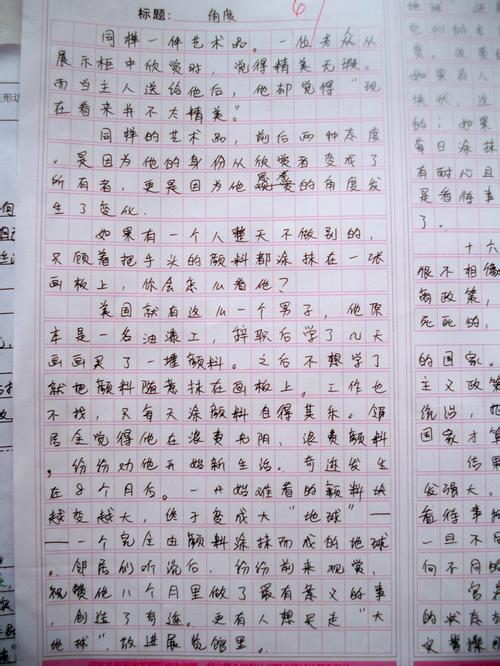 标题: 角度
同样一件艺术品。一位老众从
展示柜中欣赏时，觉得精美无瑕。
而当主人送给他后，他却觉得“现
在看来并不太精美”。
同样的艺术品，前后两种态度
。是因为他的身份从欣赏者变成了
所有者，更是因为他观察的角度发
生了变化.
如果有一个人整天不做别的，
只顾着把手头的颜料都涂抹在一张
画板上，你会怎么看他？
美国就有这么一个男子，他原
本是一名油漆工，辞职后学了几天
画画买了一堆颜料。之后不想学了
就把颜料随意抹在画板上。工作也
不找，只每天涂颜料自得其乐。邻
居全觉得他在浪费光阴、浪费颜料，
纷纷劝他开始新生活。奇迹发生
在8个月后。一开始难看的颜料块
越变越大，终于变成大“地球”—
—一个完全由颜料涂抹而成的地球
。邻居们听说后，纷纷前来观赏，
祝贺他八个月里做了最有意义的事
，创造了奇迹。更有人想买走“大
地球”.放进展览馆里。
地球
包们的
如果有人
块状，这
的；如果
每日涂抹
有耐心且
是看待事
了。
十六
很不相像
匍政策，
死死的，
的国家。
主义政策
统治，
国家才
结果
发强大。
看待事
一旦不
何不同的
官
的状态